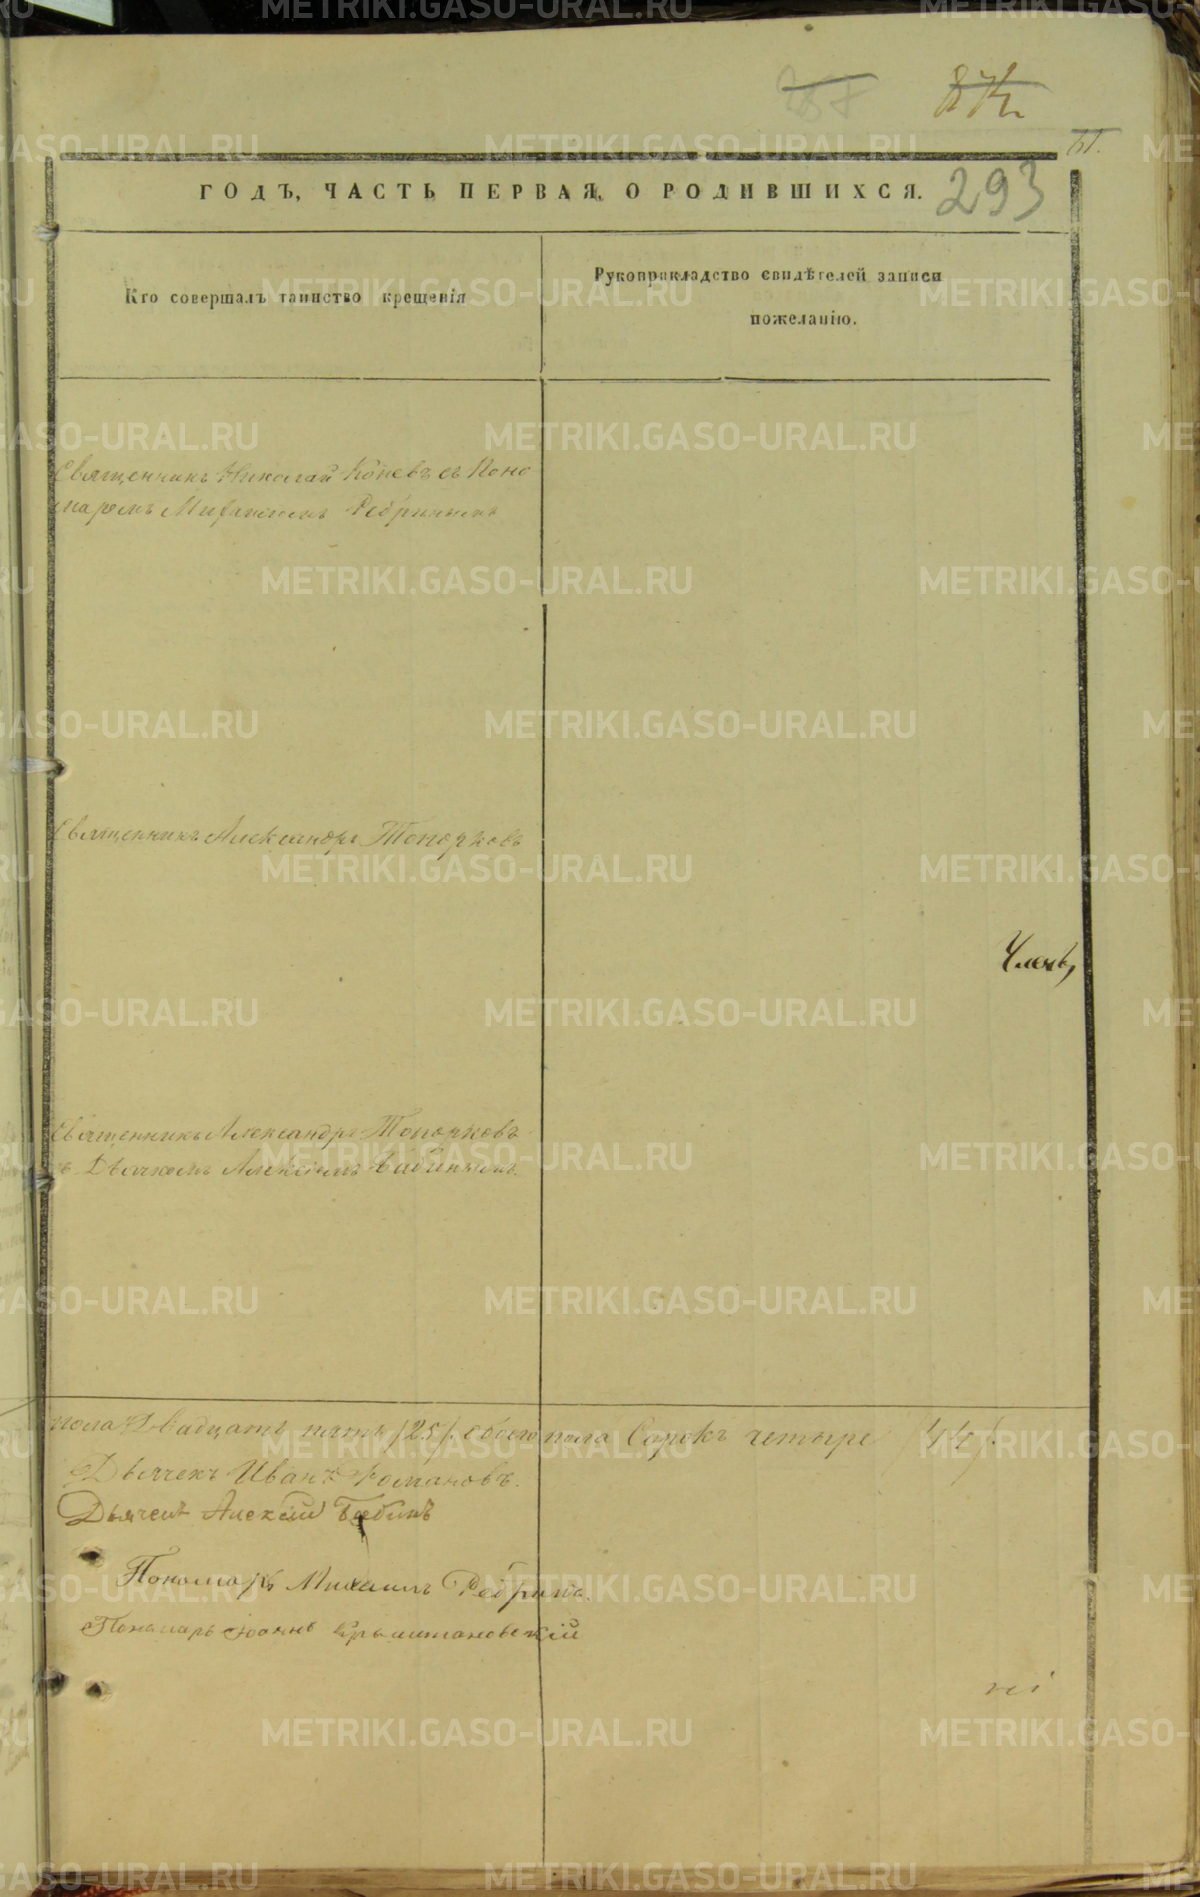 293
ГОДЪ, ЧАСТЬ ПЕРВАЯ, О РОДИВШИХСЯ.
Кто совершалъ таинство крещенія
Рукоприкладство свидѣтелей записи
пожеланію.
Священникъ Николай Коневъ съ Поно
маремъ Михаиломъ Ребринымъ
Священникъ Александръ Топорковъ
Членъ,
Священникъ Александръ Топорковъ
съ Дьячкомъ Алексѣемъ Бабинымъ.
пола Двадцать пять /25/. обоего пола Сорокъ четыре /44/.
Дьячекъ Иванъ Романовъ.
Дьячекъ Алексѣй Бабинъ
Пономарь Михаилъ Ребринъ.
Пономарь Іоаннъ
METRIKI.GASO-URAL.RU